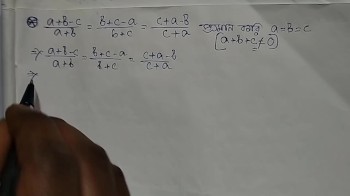 ⊛ (a+b-c)/(a+b) = (b+c-a)/(b+c) = (c+a-b)/(c+a) প্রমাণ করি a=b=c
[a+b+c≠0]
⇒ (a+b-c)/(a+b) = (b+c-a)/(b+c) = (c+a-b)/(c+a)
⇒